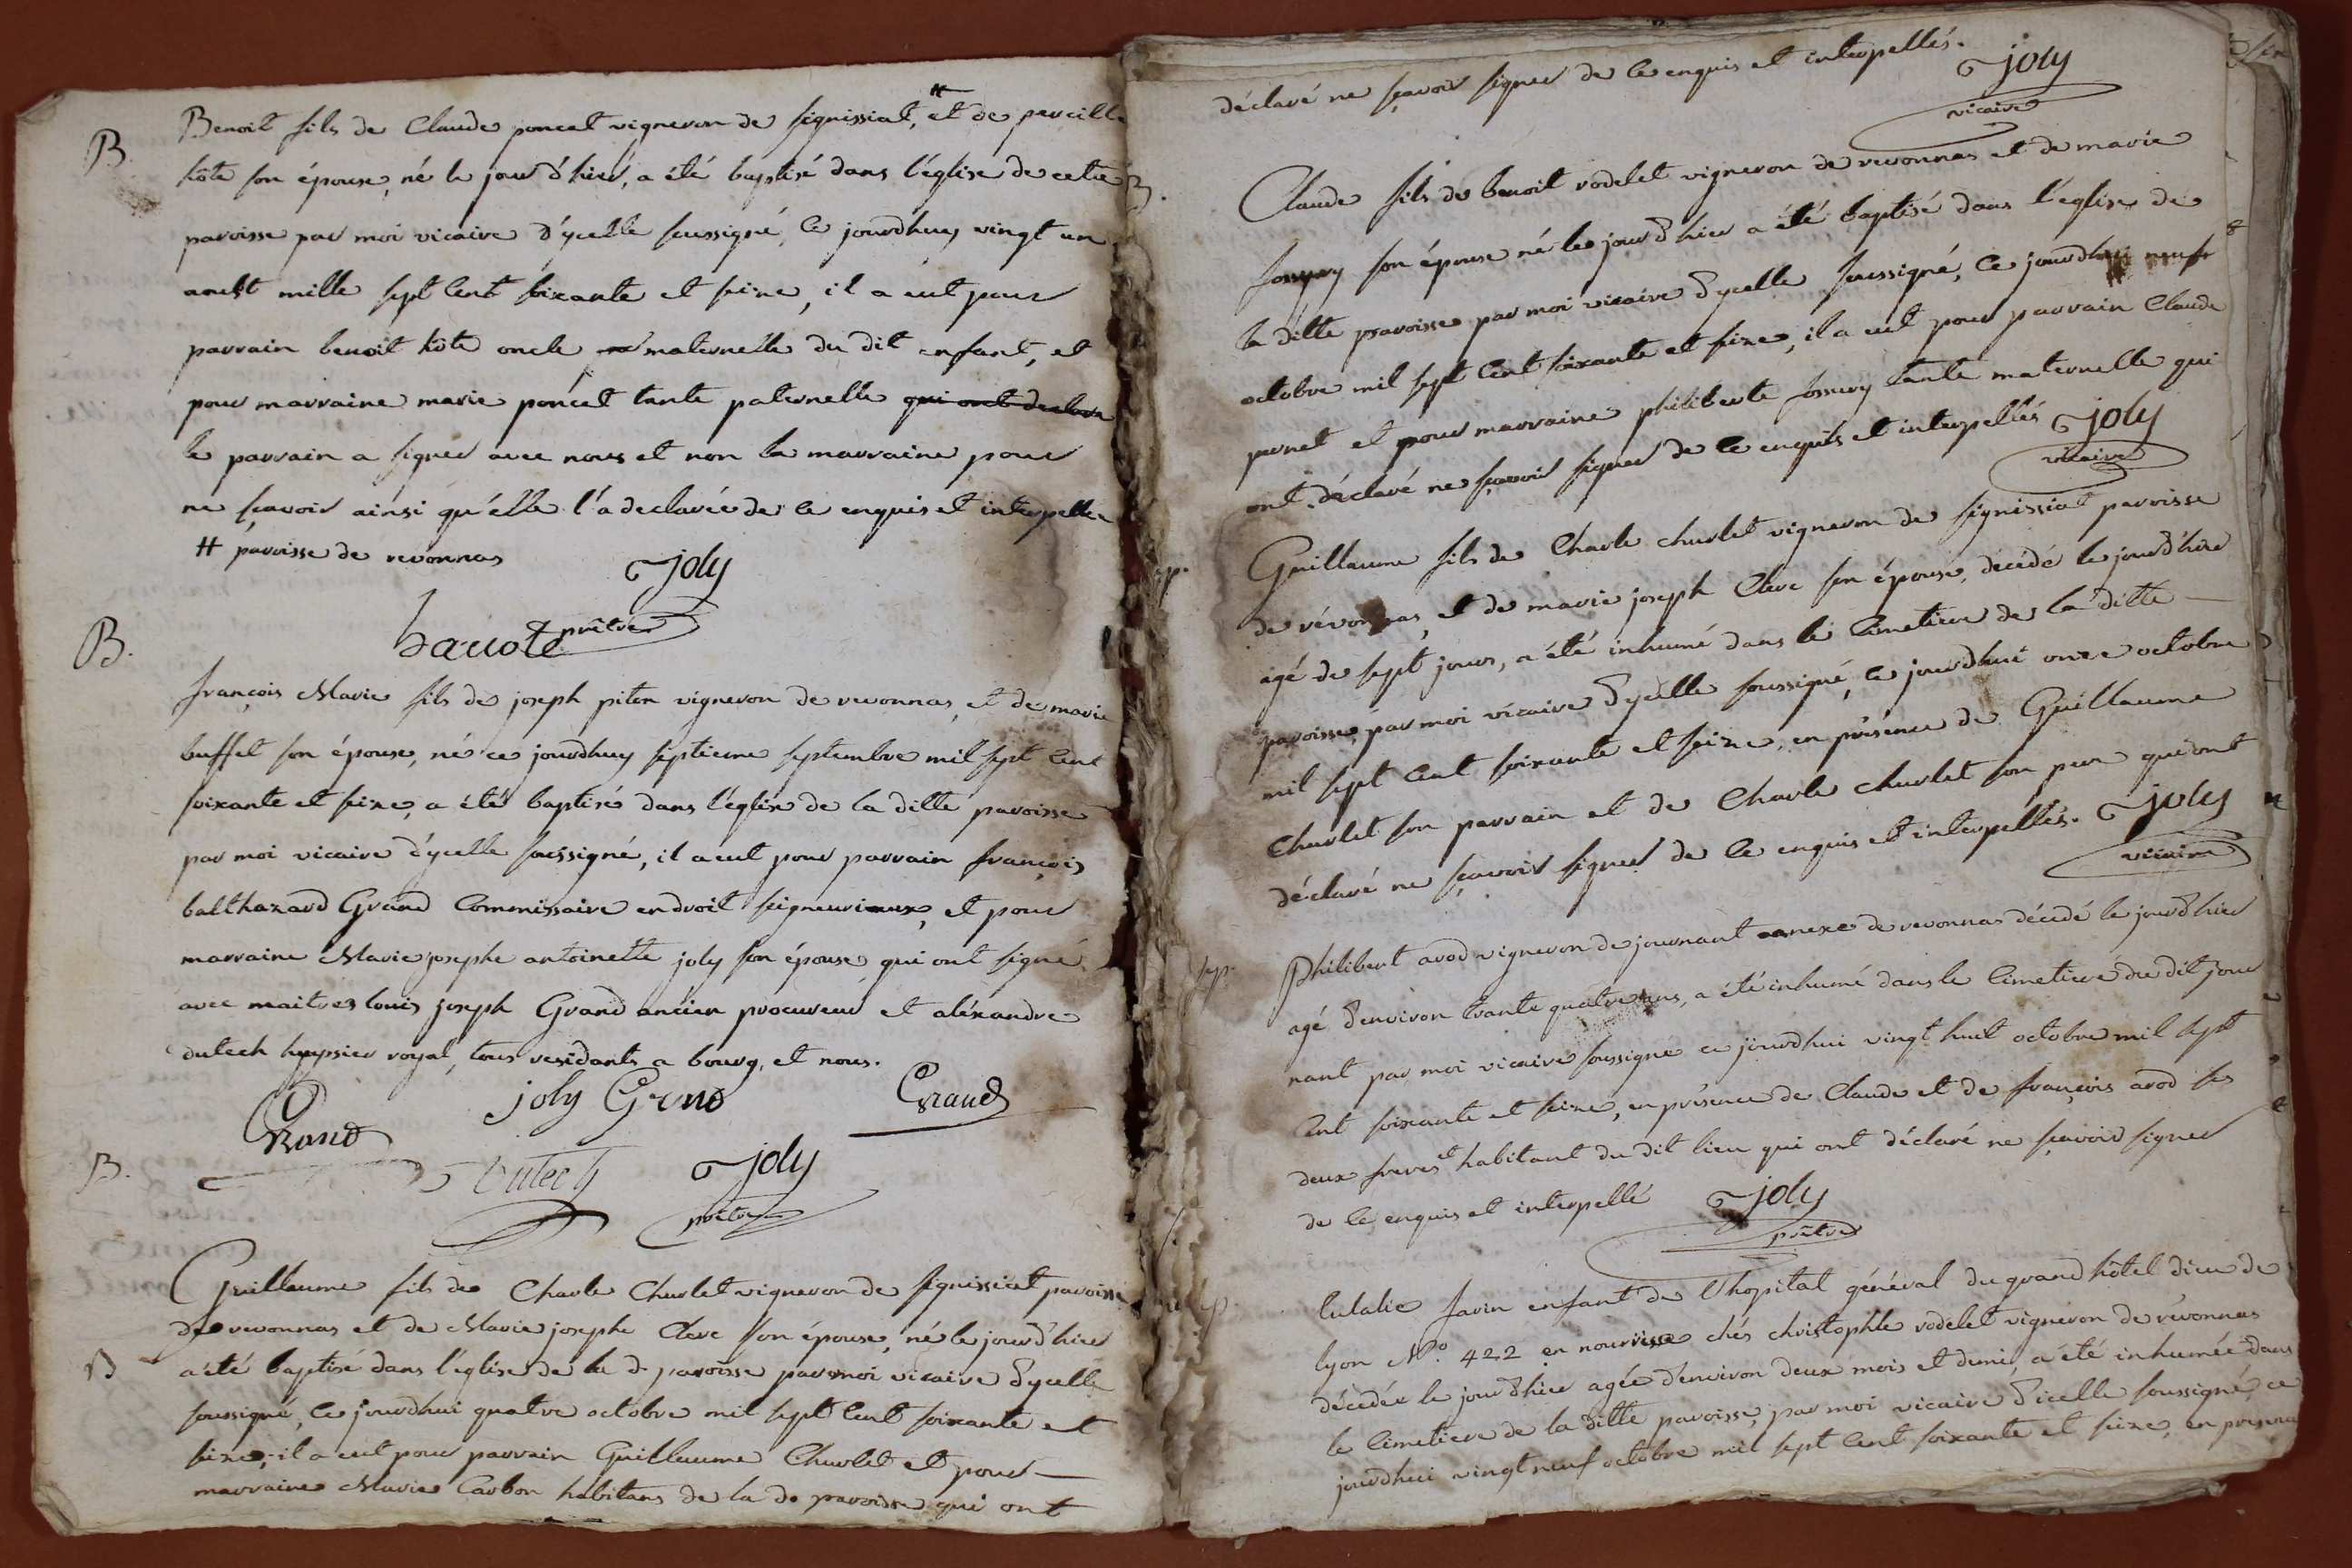 B. Benoit fils de Claude poncet vigneron de signissiat, # et de pareille
kôte son épouse, né le jour d'hier, a été baptisé dans l'église de cette
paroisse par moi vicaire d'ycelle soussigné, ce jourdhuy vingt un
aoust mille sept cent soixante et seize, il a eut pour
parrain benoit kôte oncle maternelle du dit enfant, et
pour marraine marie poncet tante paternelle qui ont declare
le parrain a signer avec nous et non la marraine pour
ne sçavoir ainsi qu'elle l'a declarée de ce enquis et interpellée
# paroisse de revonnas
joly
prêtre
B.
françois Marie fils de joseph piton vigneron de revonnas, et de marie
buffet son épouse, né ce jourdhuy septieme septembre mil sept cent
soixante et seize, a été baptisé dans l'église de la ditte paroisse
par moi vicaire d'ycelle soussigné, il a eut pour parrain françois
balthazard Grand Commissaire en droit seigneuriaux, et pour
marraine Marie josephe antoinette joly son épouse qui ont signé
avec maitres louis joseph Grand ancien procureur et aléxandre
dutech huyssier royal, tous residants a bourg, et nous.
joly Grand Grand
Grand
B. dutech joly
prêtre
Guillaume fils de Charle Churlet vigneron de signissiat paroisse
de revonnas et de Marie josephe Clerc son épouse, né le jourd'hier
B a été baptisé dans l'église de la d. paroisse par moi vicaire d'ycelle
soussigné, ce jourdhui quatre octobre mil sept cent soixante et
seize, il a eut pour parrain Guillaume Churlet et pour
marraine Marie Carbon habitans de la d. paroisse qui ont
déclaré ne sçavoir signer de ce enquis et interpellés. joly
vicaire
B. Claude fils de benoit rodelet vigneron de revonnas et de marie
son épouse né le jourd'hier a été baptisé dans l'église de
la ditte paroisse par moi vicaire d'ycelle soussigné, ce jourdhui neuf
octobre mil sept cent soixante et seize, il a eut pour parrain Claude
pernet et pour marraine philiberte tante maternelle qui
ont déclaré ne sçavoir signer de ce enquis et interpellés joly
vicaire
Guillaume fils de Charle churlet vigneron de signissiat paroisse
de révonnas, et de marie joseph Clerc son épouse, décédé le jourd'hier
agé de sept jours, a été inhumé dans le Cimetiere de la ditte
paroisse par moi vicaire d'ycelle soussigné, ce jourdhui onze octobre
mil sept cent soixante et seize, en présence de Guillaume
Churlet son parrain et de Charle churlet son pere qui ont
déclaré ne sçavoir signer de ce enquis et interpellés. joly
vicaire
sep. Philibert avod vigneron de journant annexe de revonnas décédé le jourd'hier
agé d'environ trante quatre ans, a été inhumé dans le Cimetiere du dit jour
nant par moi vicaire soussigné ce jourdhui vingt huit octobre mil sept
cent soixante et seize, en présence de Claude et de françois avod ses
deux freres et habitant du dit lieu qui ont déclaré ne sçavoir signer
de ce enquis et interpellé joly
prêtre
Eulalie Javin enfant de l'hopital général du grand hôtel dieu de
lyon N.° 422 en nourrice chés christophle rodelet vigneron de révonnas
décédée le jour d'hier agée d'environ deux mois et demi, a été inhumée dans
le Cimetiere de la ditte paroisse, par moi vicaire d'icelle soussigné, ce
jourdhui vingt neuf octobre mil sept cent soixante et seize, en présence